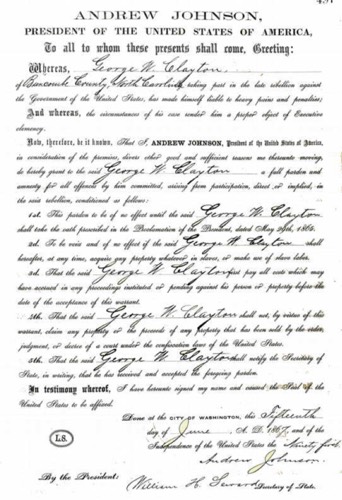 ANDREW JOHNSON,
PRESIDENT OF THE UNITED STATES OF AMERICA,
To all to whom these presents shall come, Greeting:
Whereas, George W. Clayton,
of Buncombe County, North Carolina, taking part in the late rebellion against
the Government of the United States, has made himself liable to heavy pains and penalties;
And whereas, the circumstances of his case render him a proper object of Executive
clemency,
Now, therefore, be it known, That I, ANDREW JOHNSON, President of the United States of America,
in consideration of the premises, divers other good and sufficient reasons me thereunto moving,
do hereby grant to the said George W. Clayton a full pardon and
amnesty for all offences by him committed, arising from participation, direct or implied, in
the said rebellion, conditioned as follows:
1st. This pardon to be of no effect until the said George W. Clayton
shall take the oath prescribed in the Proclamation of the President, dated May 29th, 1865.
2d. To be void and of no effect if the said George W. Clayton shall
hereafter, at any time, acquire any property whatever in slaves, or make use of slave labor.
3d. That the said George W. Clayton first pay all costs which may
have accrued in any proceedings instituted or pending against his person or property before
the date of the acceptance of this warrant.
4th. That the said George W. Clayton shall not, by virtue of this
warrant, claim any property or the proceeds of any property that has been sold by the order,
judgment, or decree of a court under the confiscation laws of the United States.
5th. That the said George W. Clayton shall notify the Secretary of
State, in writing, that he has received and accepted the foregoing pardon.
In testimony whereof, I have hereunto signed my name and caused the Seal of the
United States to be affixed.
Done at the CITY OF WASHINGTON, this Fifteenth
day of June, A. D. 1867, and of the
Independence of the United States the Ninety first.
L.S.
Andrew Johnson
By the President:
William H. Seward
Secretary of State.